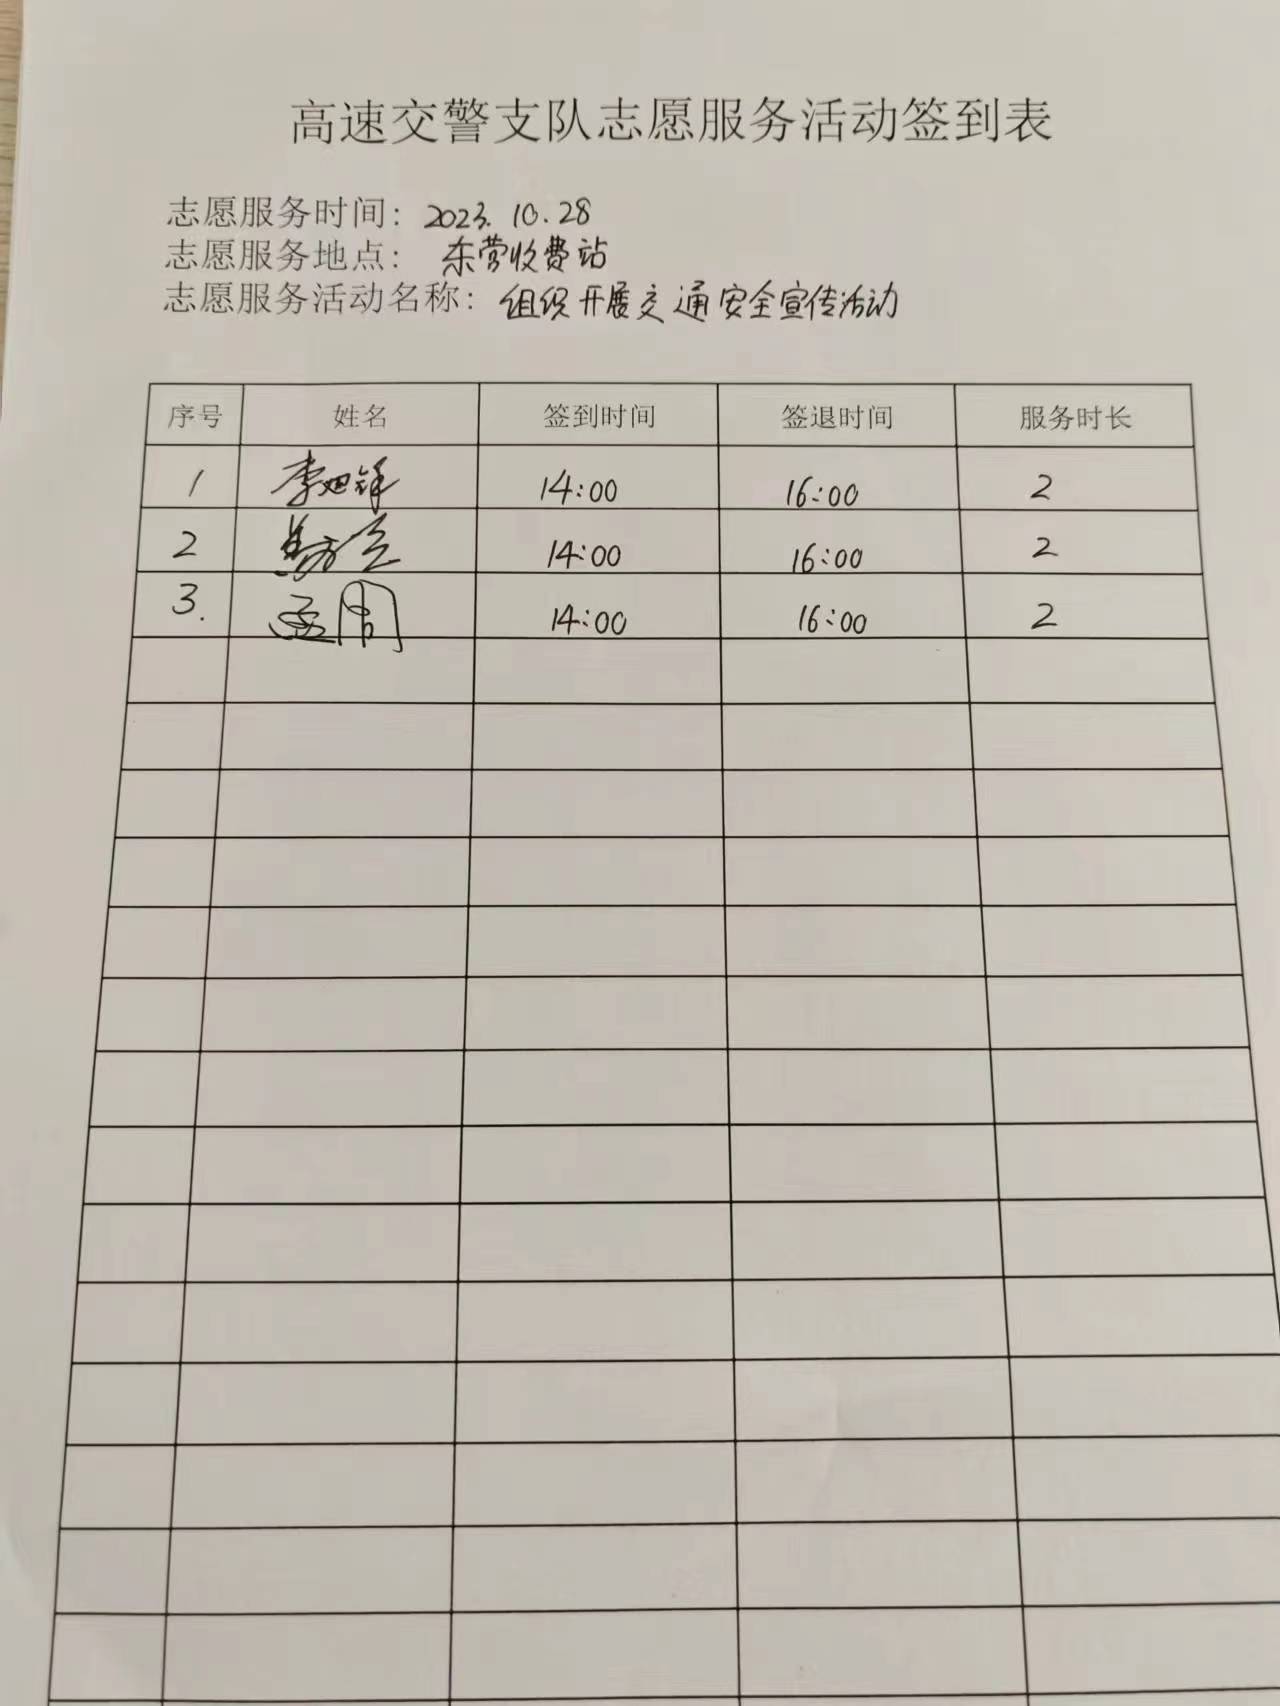 高速交警支队志愿服务活动签到表
志愿服务时间：2023.10.28
志愿服务地点：东营收费站
志愿服务活动名称：组织开展交通安全宣传活动
序号 姓名 签到时间 签退时间 服务时长
1 李旭锋 14:00 16:00 2
2 14:00 16:00 2
3. 14:00 16:00 2